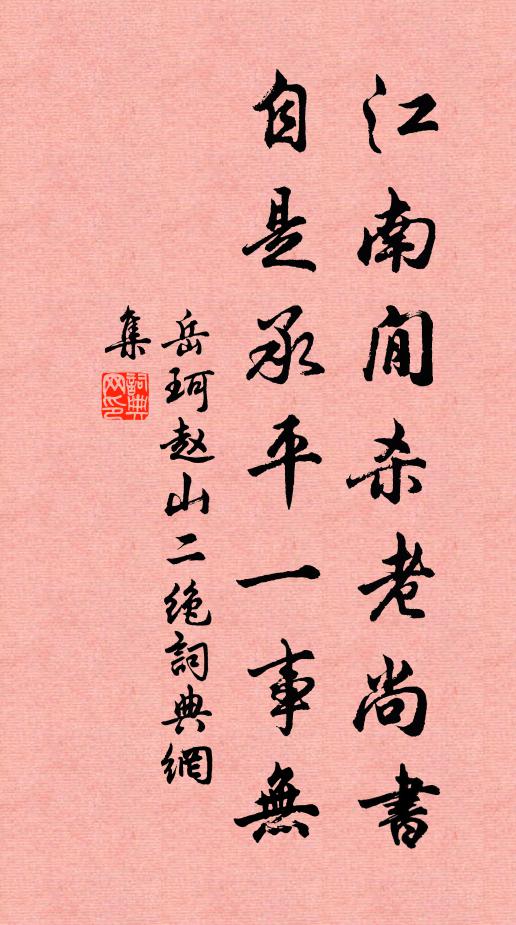 江南閒杀老尚書
自是承平一事無
岳珂赵山二绝詞典網
集
詞典网印